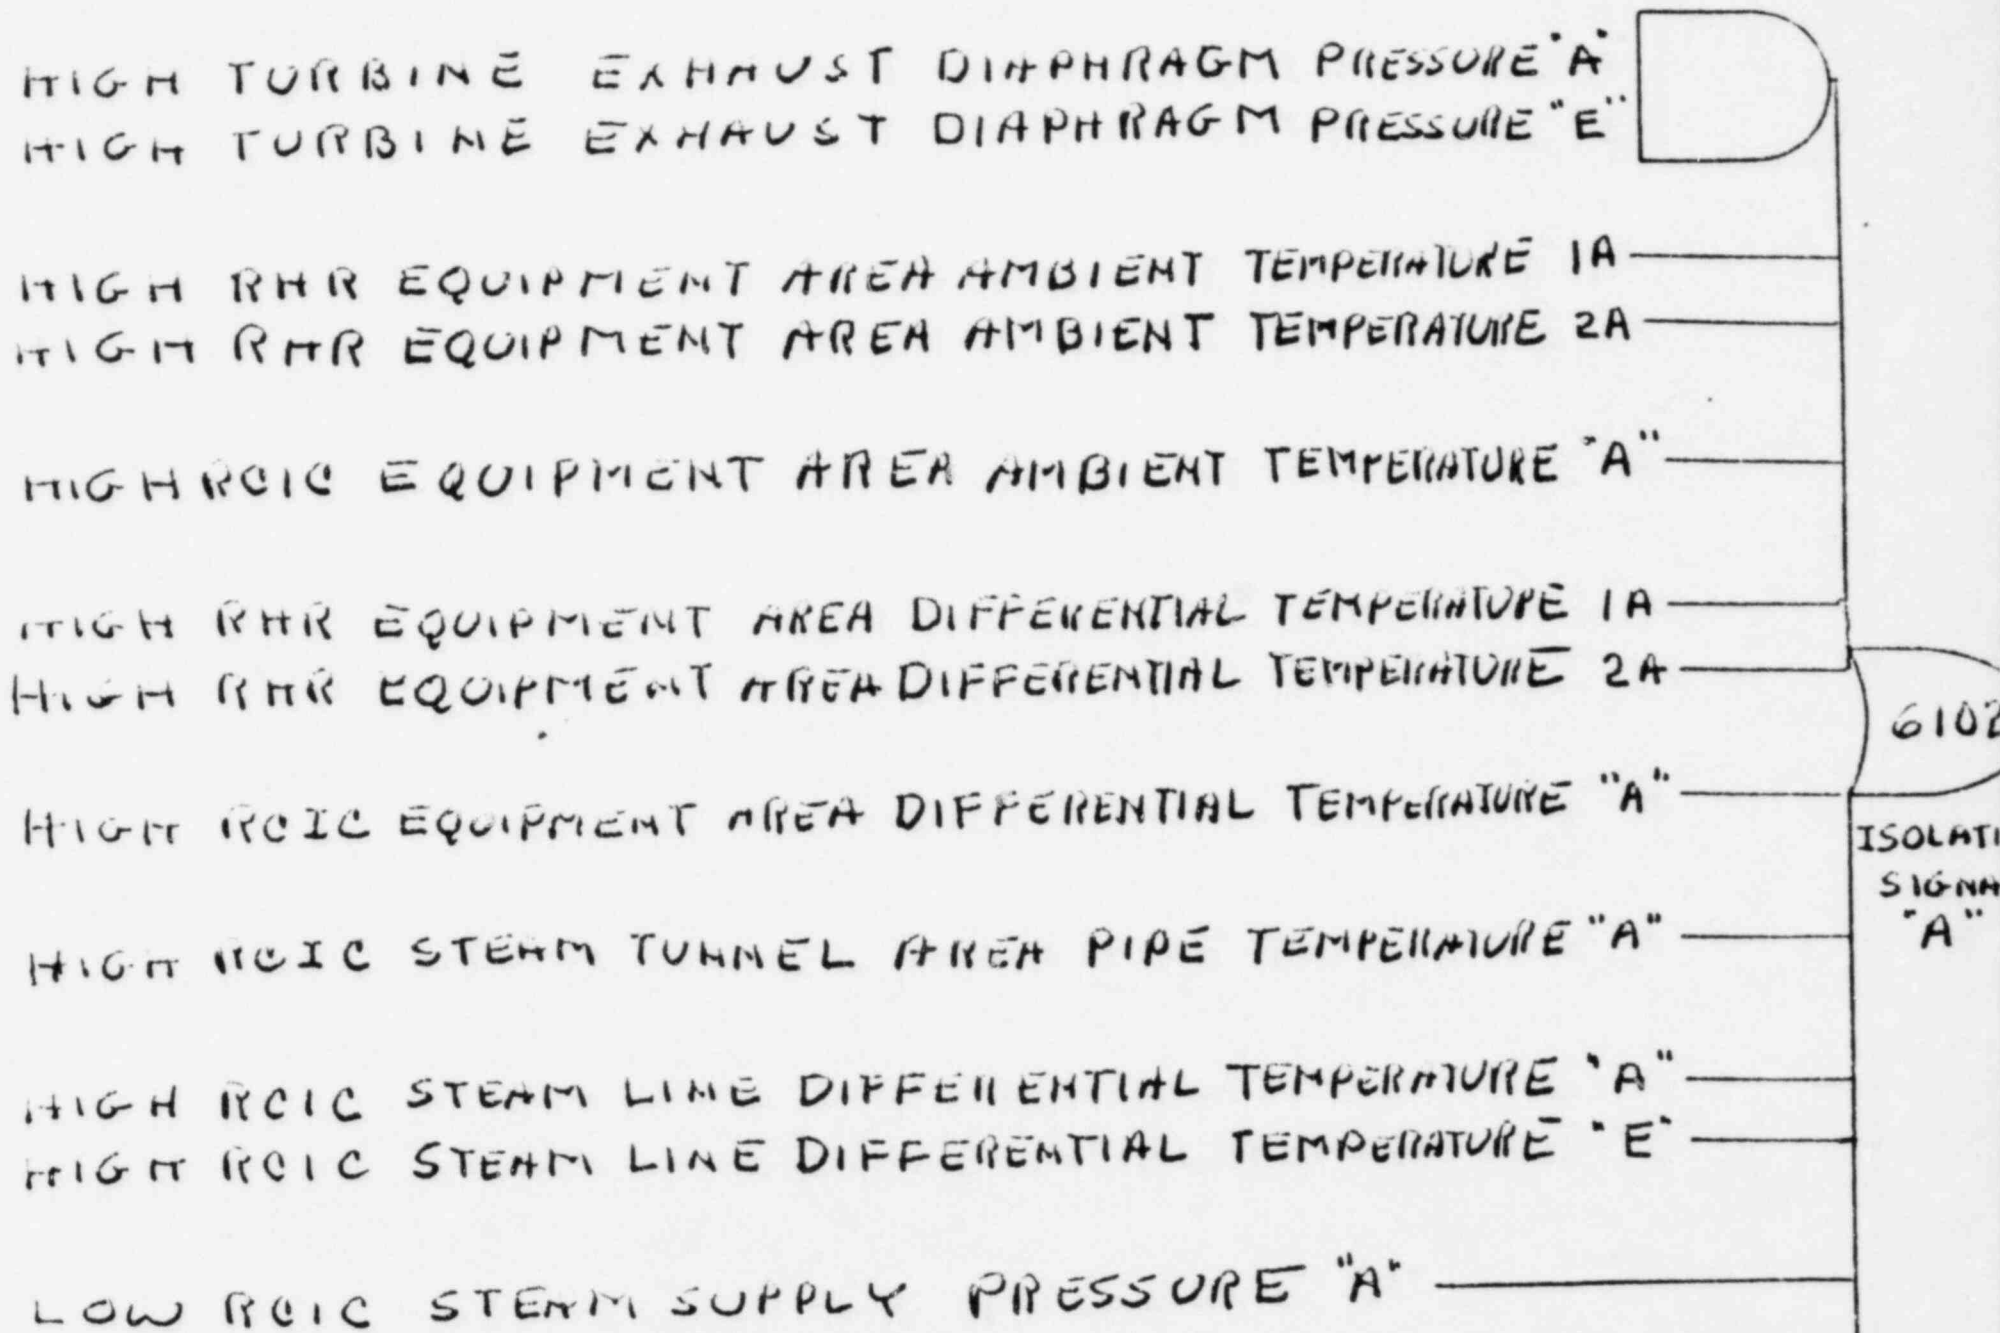 HIGH TURBINE EXHAUST DIAPHRAGM PRESSURE "A"
HIGH TURBINE EXHAUST DIAPHRAGM PRESSURE "E"
HIGH RHR EQUIPMENT AREA AMBIENT TEMPERATURE 1A
HIGH RHR EQUIPMENT AREA AMBIENT TEMPERATURE 2A
HIGH RCIC EQUIPMENT AREA AMBIENT TEMPERATURE "A"
HIGH RHR EQUIPMENT AREA DIFFERENTIAL TEMPERATURE 1A
HIGH RHR EQUIPMENT AREA DIFFERENTIAL TEMPERATURE 2A
6102
HIGH RCIC EQUIPMENT AREA DIFFERENTIAL TEMPERATURE "A"
ISOLATI
SIGNA
"A"
HIGH RCIC STEAM TUNNEL AREA PIPE TEMPERATURE "A"
HIGH RCIC STEAM LINE DIFFERENTIAL TEMPERATURE "A"
HIGH RCIC STEAM LINE DIFFERENTIAL TEMPERATURE "E"
LOW RCIC STEAM SUPPLY PRESSURE "A"